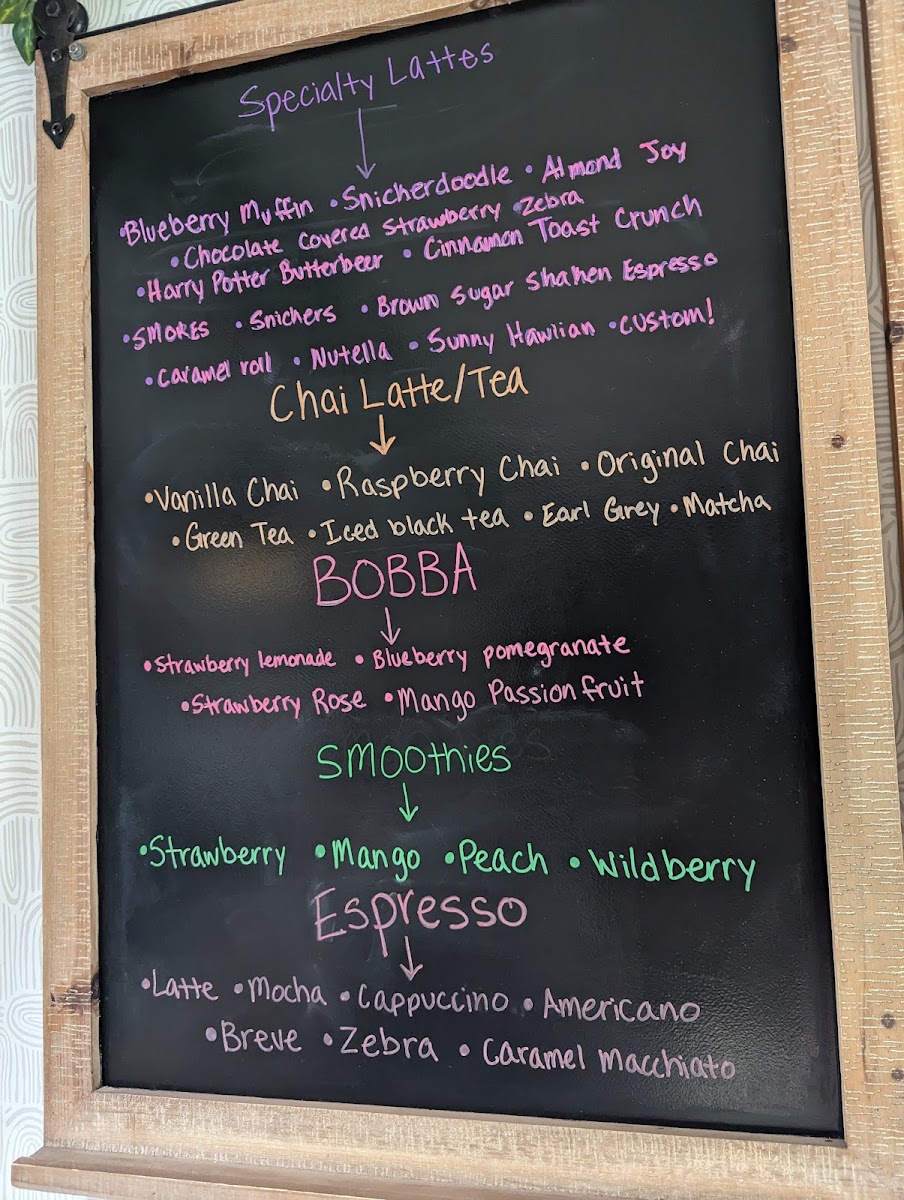 Specialty Lattes
•Blueberry Muffin •Snickerdoodle •Almond Joy
•Chocolate Covered Strawberry •Zebra
•Harry Potter Butterbeer •Cinnamon Toast Crunch
•SMORES •Snickers •Brown Sugar Shaken Espresso
•Caramel roll •Nutella •Sunny Hawiian •custom!
Chai Latte/Tea
•Vanilla Chai •Raspberry Chai •Original Chai
•Green Tea •Iced black tea •Earl Grey •Matcha
BOBBA
•Strawberry lemonade •Blueberry pomegranate
•Strawberry Rose •Mango Passion fruit
Smoothies
•Strawberry •Mango •Peach •Wildberry
Espresso
•Latte •Mocha •Cappuccino •Americano
•Breve •Zebra •Caramel Macchiato